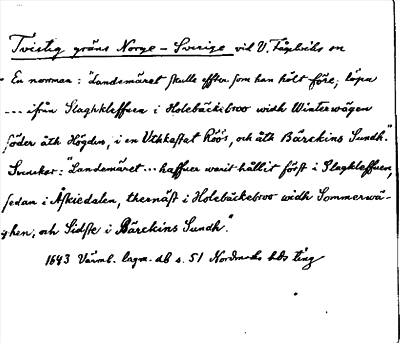 Tvistig gräns Norge – Sverige vid V. Fågelviks sn
En norman: "Landemäret skulle effter som han hölt före, löpa
--- ifrån Slaghkleffuen i Holebäckebroo widh Winterwägen
söder åth Högden, i en Uthkastat Röös, och åth Bärckins Sundh".
Svenskar: "Landemäret ... haffuer warit hållit först i Slagkleffuen,
sedan i Åskiedalen, thernäst i Holebäckebroo widh Sommerwä-
ghen, och Sidste i Bärckins Sundh."
1643 Värml. lagm. db s. 51 Nordmarks hds ting